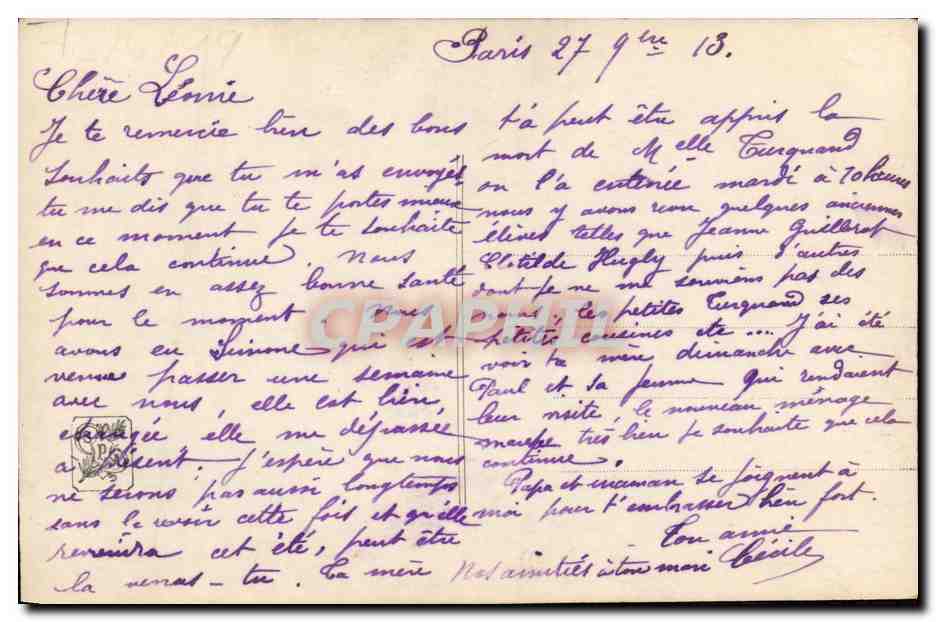 Paris 27 9bre 13.
Chère Léonie
Je te remercie bien des bons
souhaits que tu m'as envoyés
tu me dis que tu te portes mieux
en ce moment je te souhaite
que cela continue. Nous
sommes en assez bonne santé
pour le moment. Nous
avons eu Simone qui est
venue passer une semaine
avec nous, elle est bien
changée elle me dépasse
à présent. J'espère que nous
ne serons pas aussi longtemps
sans la revoir cette fois et qu'elle
reviendra cet été, peut être
la verras-tu. Ta mère
t'a peut être appris la
mort de Melle Turquand
on l'a enterrée mardi à 10 heures
nous y avons revu quelques anciennes
élèves telles que Jeanne Guillerot
Clotilde Hugly puis d'autres
dont je ne me souviens pas des
noms, les petites Turquand ses
petites cousines etc... J'ai été
voir ta mère dimanche avec
Paul et sa femme qui rendaient
leur visite, le nouveau ménage
marche très bien je souhaite que cela
continue.
Papa et maman se joignent à
moi pour t'embrasser bien fort.
Ton amie
Nos amitiés à ton mari Cécile
CPAPHIL